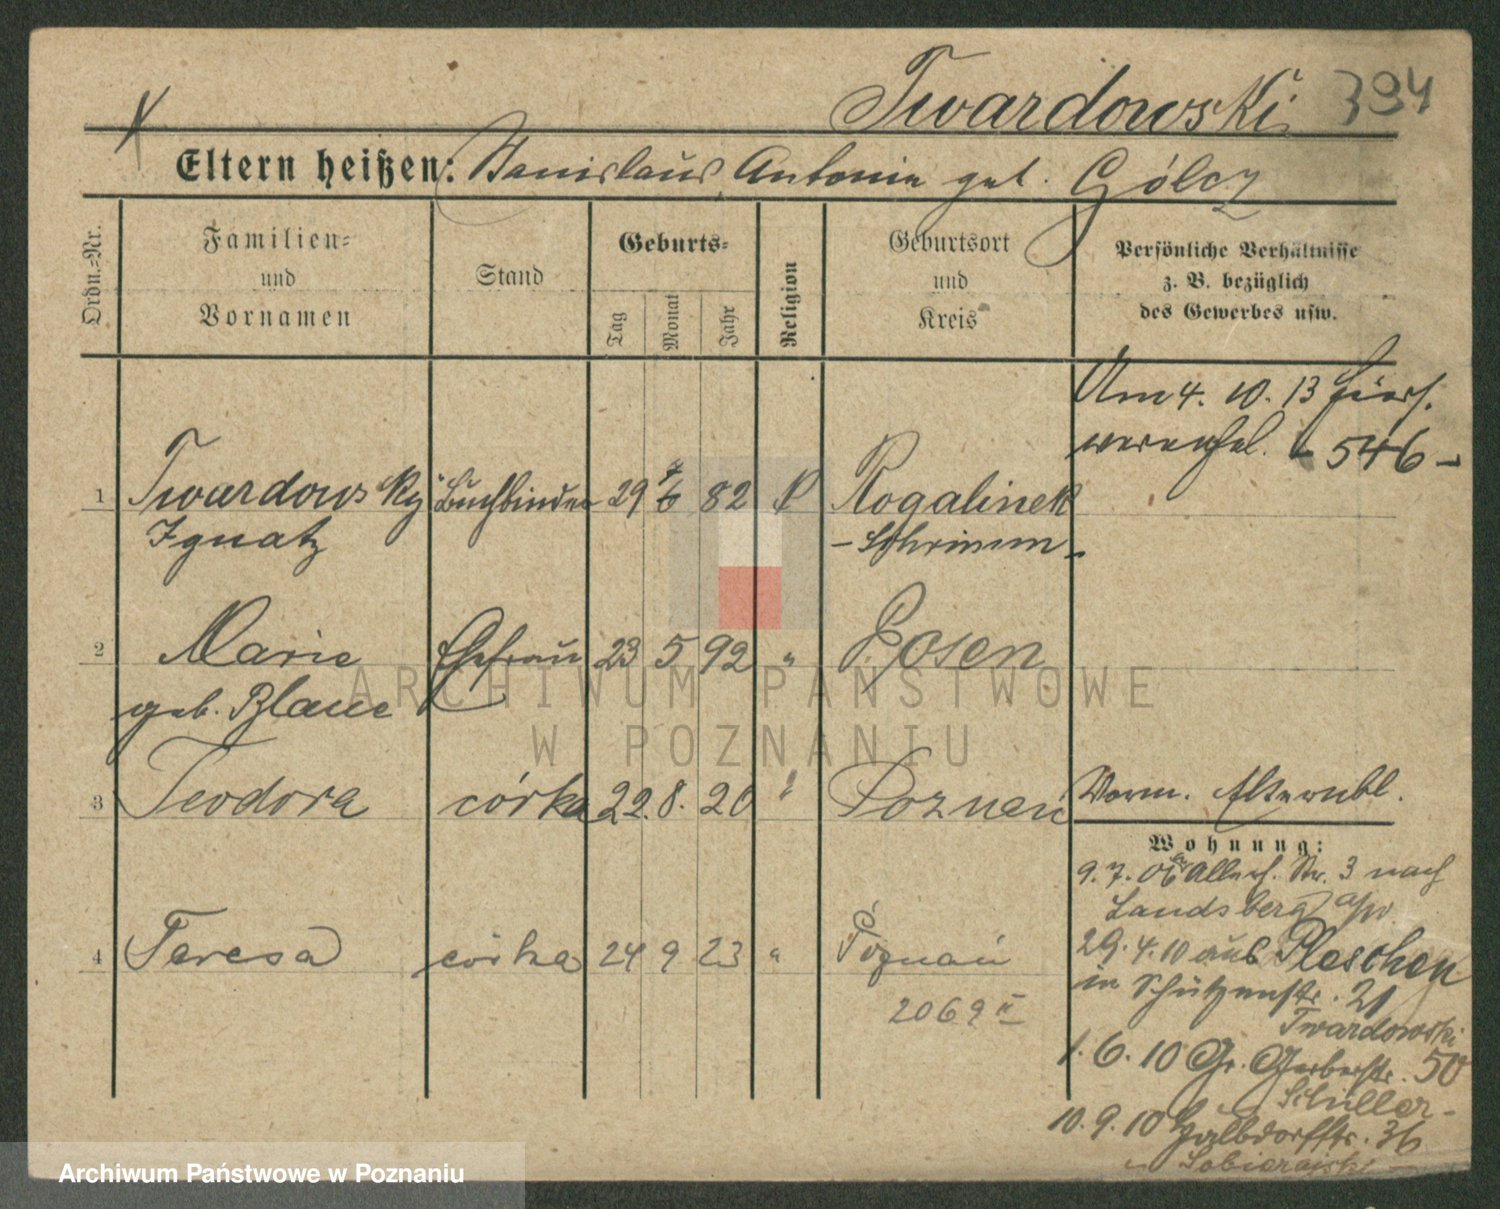 Twardowski 394
Eltern heißen: Stanislaus, Antonie geb. Gólcz
Ordn.-Nr.
Familien-
und
Vornamen
Stand
Geburts-
Tag
Monat
Jahr
Religion
Geburtsort
und
Kreis
Persönliche Verhältnisse
z. B. bezüglich
des Gewerbes usw.
Am 4. 10. 13
546 -
1 Twardowsky Buchbinder 29 82 Rogalinek
Ignatz - Schrimm -
2 Marie Ehefrau 23 5 92 " Posen
geb.
3 Teodora córka 22. 8. 20 " Poznań
Vorm. Elternbl.
Wohnung:
9. 7. 06 Str. 3 nach
Landsberg a/W
4 Teresa córka 24 9 23 " Poznań
29. 4. 10 aus Pleschen
in Schützenstr. 21
2069 II
Twardowski
1. 6. 10 Gr. Gerberstr. 50
Schüller -
10. 9. 10 Halbdorffstr. 36
ARCHIWUM PAŃSTWOWE
W POZNANIU
Archiwum Państwowe w Poznaniu